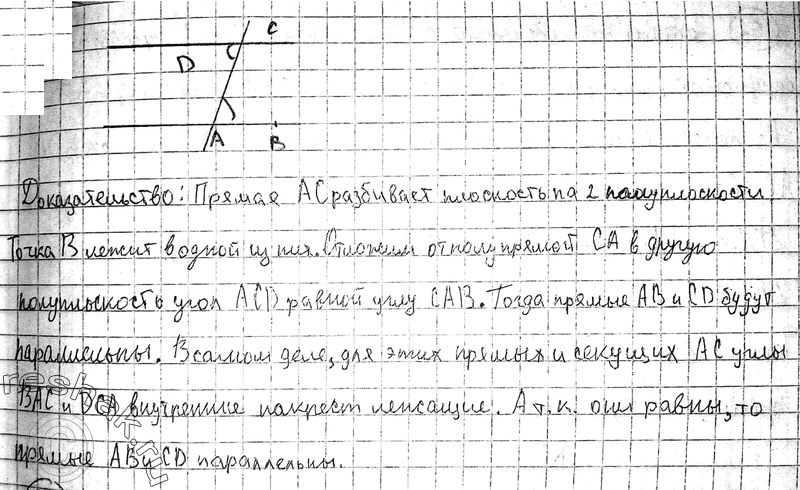 C
D
A
B
Доказательство: Прямая AC разбивает плоскость на 2 полуплоскости.
Точка B лежит в одной из них. Отложим от полупрямой CA в другую
полуплоскость угол ACD равной углу CAB. Тогда прямые AB и CD будут
параллельны. В самом деле, для этих прямых и секущих AC углы
BAC и DCA внутренние накрест лежащие. А т.к. они равны, то
прямые AB и CD параллельны.